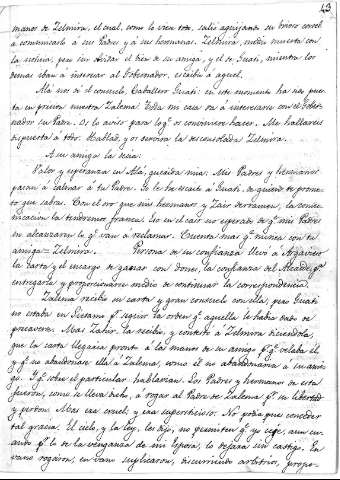 13
manos de Zelmira, el cual, como lo vieu todo, salió aguijando su brioso corcel
á comunicarlo á sus Padres y á sus hermanos. Zelmira, medio muerta con
la noticia, pero sin olvidar el bien de su amiga, y el de Guati, mientras los
demas iban á interesar al Gobernador, escribia á aquel.
Alá nos dé el consuelo, Caballero Guati: en este momento ha sido pues-
ta en prision nuestra Zulema. Toda mi casa va á interesarse con el Gober-
nador su Padre. Os lo aviso para lo q.e os convenire hacer. Me hallareis
dispuesta á todo. Hablad, y os servirá la desconsolada Zelmira.
A su amiga la decia:
Valor y esperanza en Alá, querida mia. Mis Padres y hermanos
pasan á calmar á tu Padre. Yo he escrito á Guati, de quien de pronto
lo que sabras. Con el oro que mis hermanos y Zair derramen, la comu-
nicacion la tendremos franca. Yo en el caso no esperado de q.e mis Padres
no alcanzaren lo q.e van á reclamar. Cuenta mas q.e nunca con tu
amiga = Zelmira. Persona de su confianza llevó á
la carta y el encargo de ganar con dones la confianza del Alcaide, p.a
entregarla y proporcionarse medio de continuar la correspondencia.
Zulema recibió su carta y gran consuelo con ella, pero Guati
no estaba en Dictamo p.a seguir la orden q.e aquella le habia dado de
precaverse. Mas Zahir la recibió, y contestó á Zelmira diciendola,
que la carta llegaria pronto á las manos de su amigo p.r q.e velaba él,
y q.e no abandonase ella á Zulema, como él no abandonaria á su ami-
go. Y q.e sobre el particular hablarian. Los Padres y hermano de esta
fueron, como se lleva dicho, á rogar al Padre de Zulema p.r su libertad
y perdon. Mas era cruel, y era supersticioso. No podia pues conceder
tal gracia. El cielo, y la ley, les dijo, no permiten q.e yo ceje, aun cu-
ando p.r lo de la venganza de mi Esposa, lo dejara sin castigo. En
vano rogaron, en vano suplicaron, discurriendo arbitrios, propo-